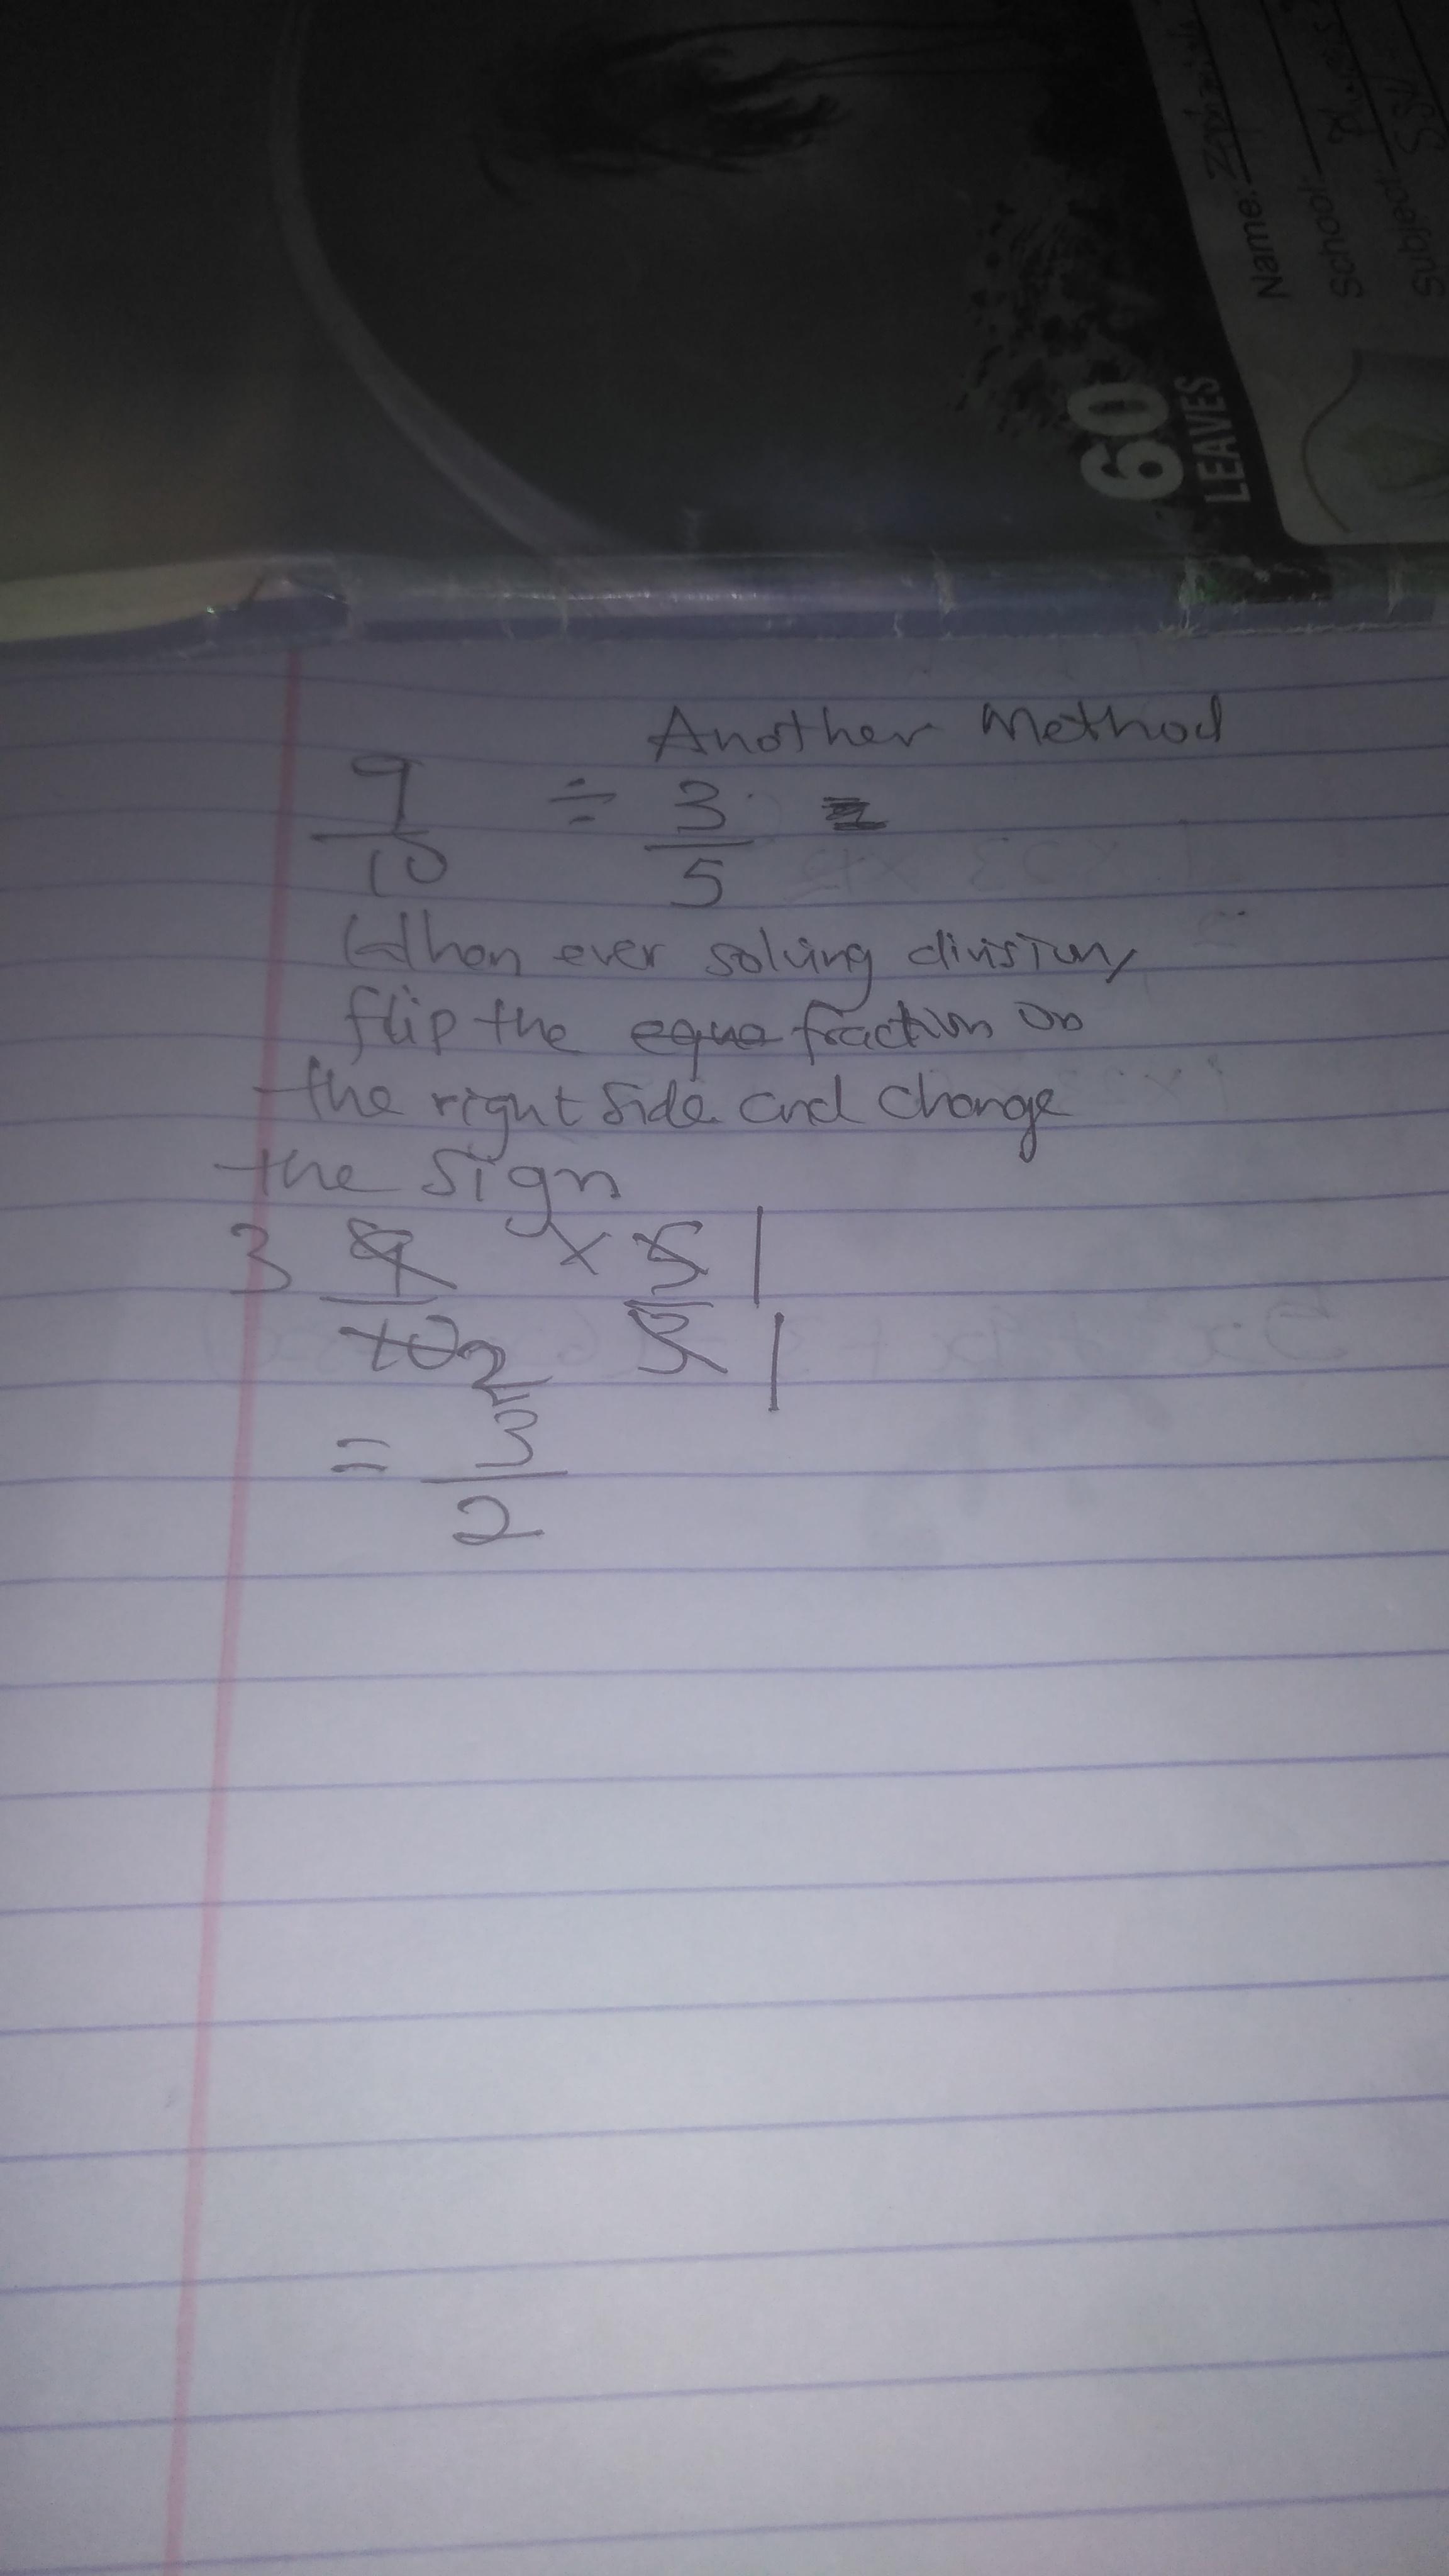 60
LEAVES
Name:
School:
Subject:
Another Method
9/10 ÷ 3/5 =
When ever solving division,
flip the equa fraction on
the right side and change
the sign
3 9/10 2 × 5/3 1 1
= 3/2